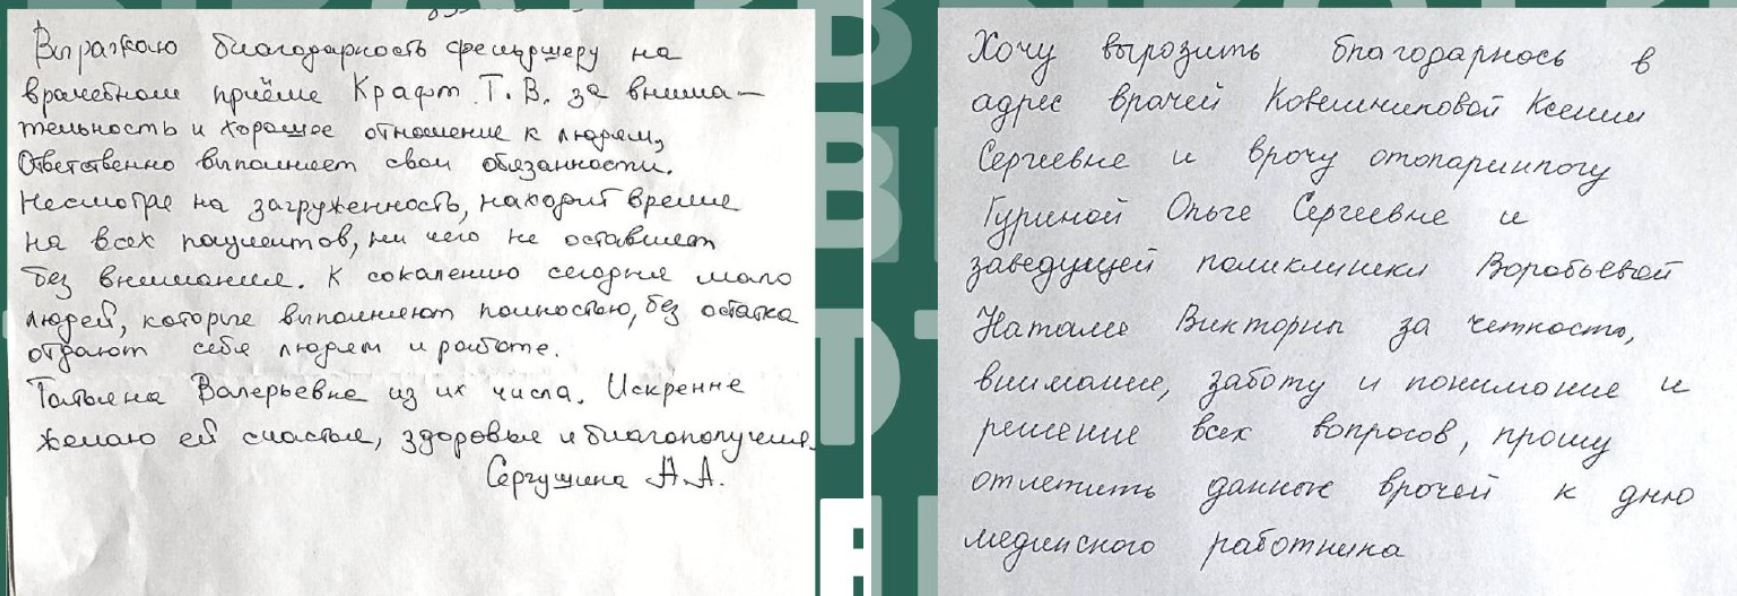 Выражаю благодарность фельдшеру на
врачебном приёме Крафт Т.В. за внима-
тельность и хорошее отношение к людям,
Ответственно выполняет свои обязанности.
Несмотря на загруженность, находит время
на всех пациентов, ни чего не оставляет
без внимания. К сожалению сегодня мало
людей, которые выполняют полностью, без остатка
отдают себя людям и работе.
Татьяна Валерьевна из их числа. Искренне
желаю ей счастья, здоровья и благополучия.
Сергушина А.А.
Хочу вырозить благодарнось в
адрес врачей Ковешниковой Ксении
Сергеевне и врочу отоларингогу
Гуриной Ольге Сергеевне и
заведующей поликлиники Воробьевой
Наталье Викторны за четкость,
внимание, заботу и понимание и
решение всех вопросов, прошу
отметить данные врочей к дню
медиского работника